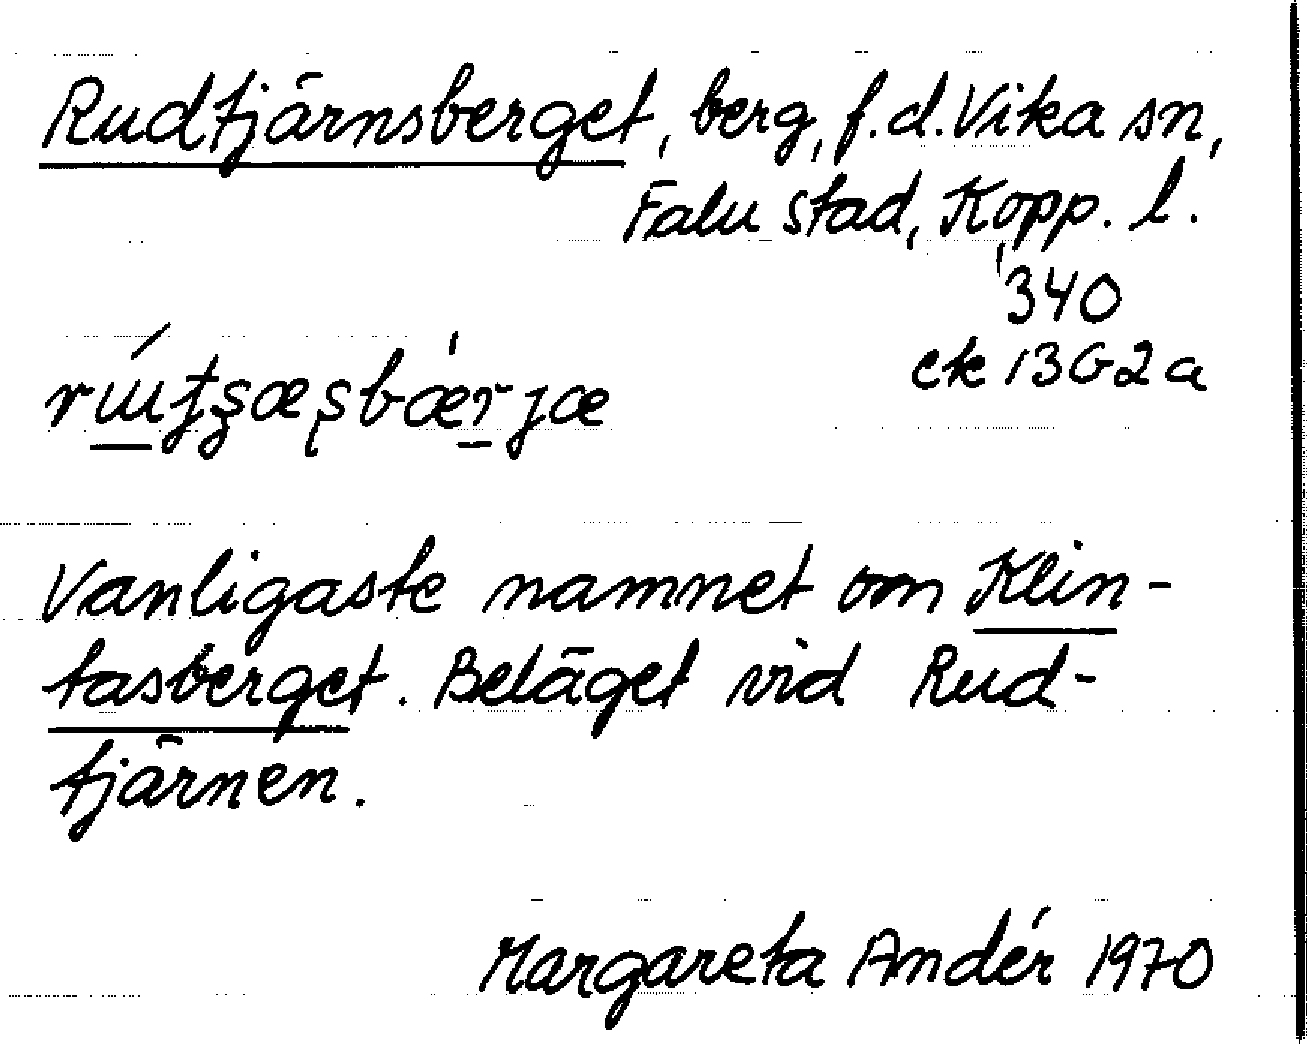 Rudtjärnsberget, berg, f.d. Vika sn,
Falu stad, Kopp. l.
340
ek 13G2a
Vanligaste namnet om Klin-
tasberget. Beläget vid Rud-
tjärnen.
Margareta Andér 1970